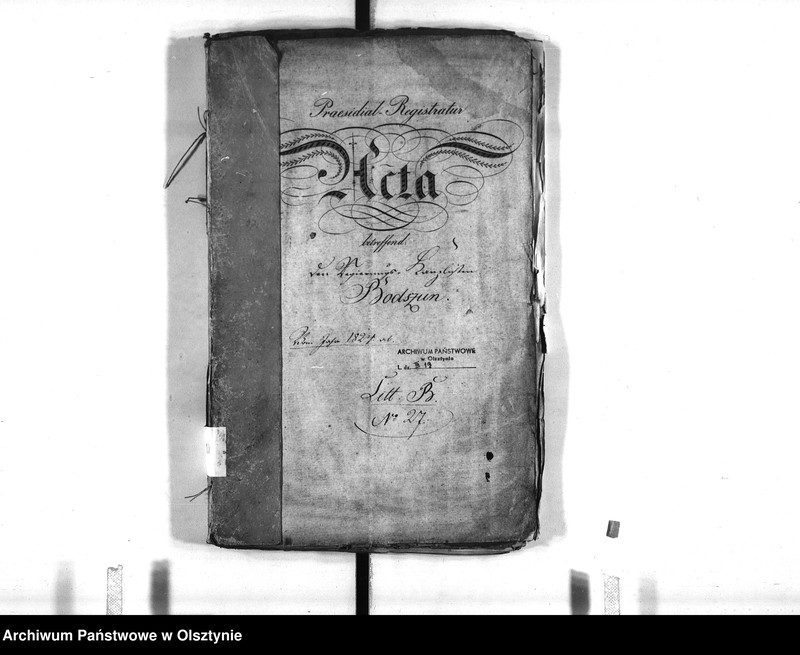 Praesidial-Registratur
Acta
betreffend:
den Regierungs-Kanzlisten
Bodszun.
Vom Jahr 1824 ab
ARCHIWUM PAŃSTWOWE
w Olsztynie
Litt. B.
No 27.
Archiwum Państwowe w Olsztynie